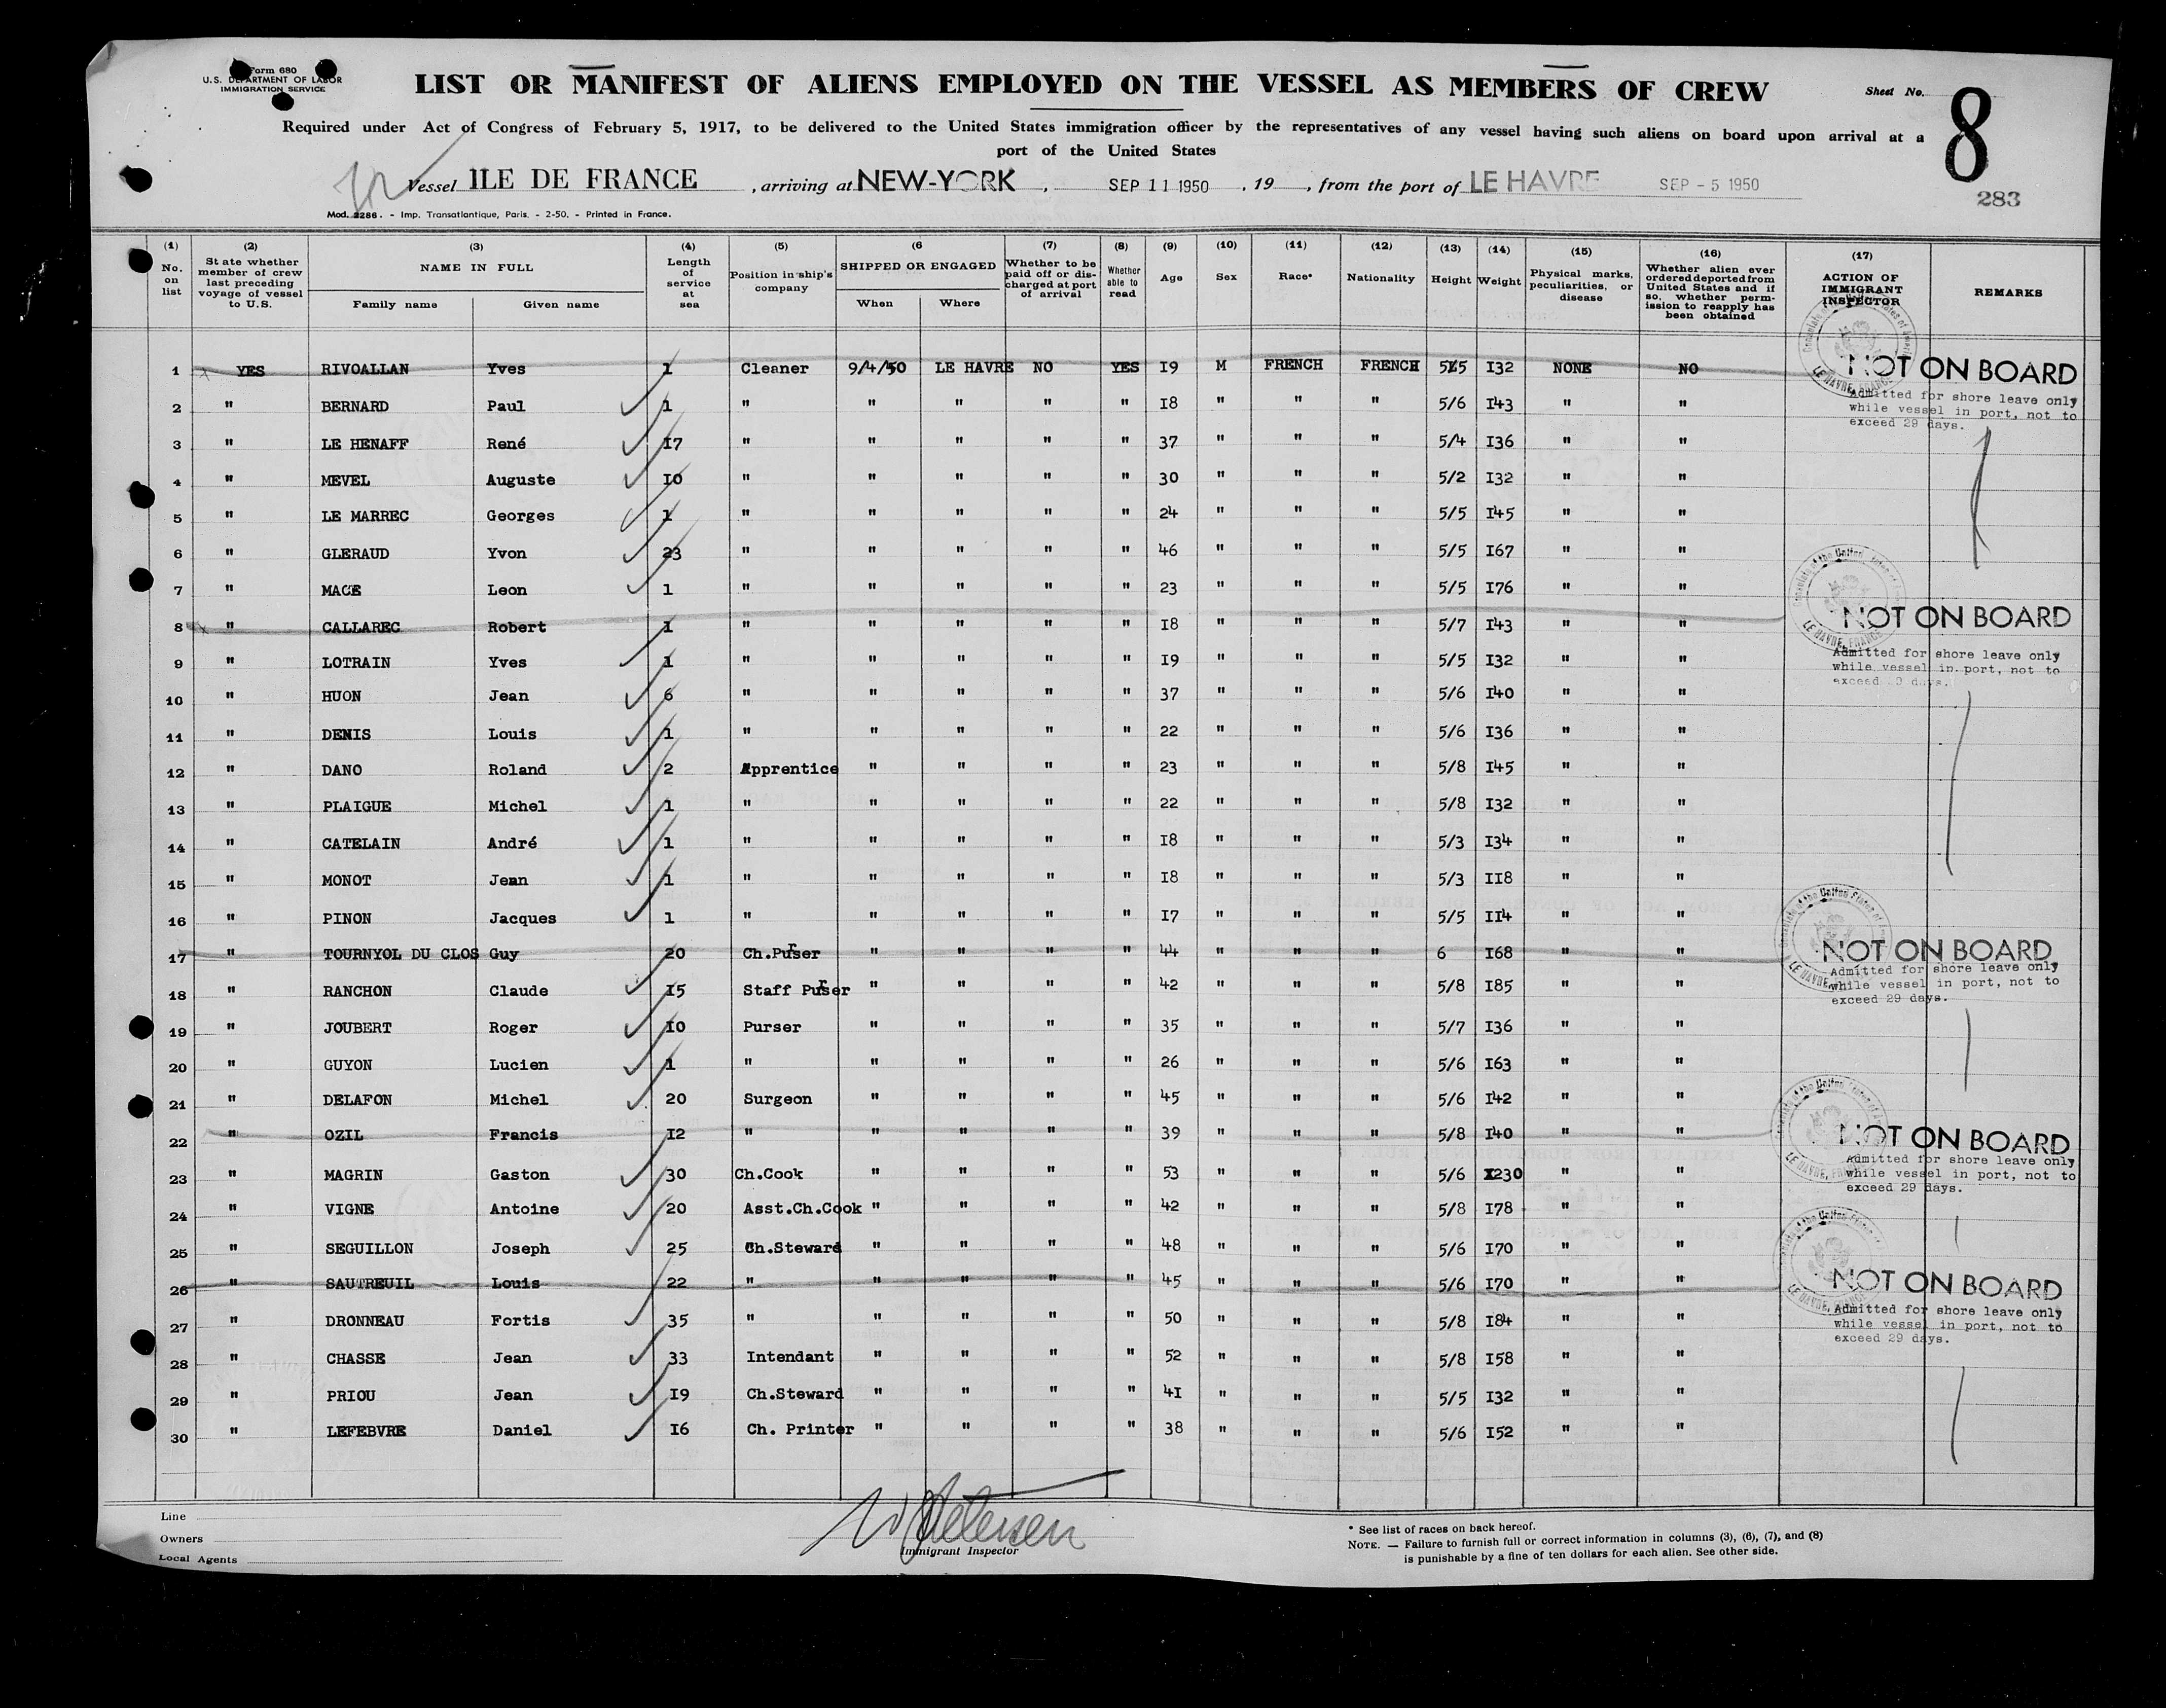 Form 680
U.S. DEPARTMENT OF LABOR
IMMIGRATION SERVICE
LIST OR MANIFEST OF ALIENS EMPLOYED ON THE VESSEL AS MEMBERS OF CREW
Sheet No. 8
Required under Act of Congress of February 5, 1917, to be delivered to the United States immigration officer by the representatives of any vessel having such aliens on board upon arrival at a
port of the United States
Vessel ILE DE FRANCE , arriving at NEW-YORK , SEP 11 1950 , 19 , from the port of LE HAVRE SEP - 5 1950
283
Mod. 2286. - Imp. Transatlantique, Paris. - 2-50. - Printed in France.
(1) No. on list
(2) State whether member of crew last preceding voyage of vessel to U.S.
(3) NAME IN FULL Family name Given name
(4) Length of service at sea
(5) Position in ship's company
(6 SHIPPED OR ENGAGED When Where
(7) Whether to be paid off or discharged at port of arrival
(8) Whether able to read
(9) Age
(10) Sex
(11) Race*
(12) Nationality
(13) Height
(14) Weight
(15) Physical marks, peculiarities, or disease
(16) Whether alien ever ordered deported from United States and if so, whether permission to reapply has been obtained
(17) ACTION OF IMMIGRANT INSPECTOR
REMARKS
1 YES RIVOALLAN Yves 1 Cleaner 9/4/50 LE HAVRE NO YES 19 M FRENCH FRENCH 5/5 132 NONE NO NOT ON BOARD
Admitted for shore leave only
while vessel in port, not to
exceed 29 days.
2 " BERNARD Paul 1 " " " " " 18 " " " 5/6 143 " "
3 " LE HENAFF René 17 " " " " " 37 " " " 5/4 136 " "
4 " MEVEL Auguste 10 " " " " " 30 " " " 5/2 132 " "
5 " LE MARREC Georges 1 " " " " " 24 " " " 5/5 145 " "
6 " GLERAUD Yvon 23 " " " " " 46 " " " 5/5 167 " "
7 " MACE Leon 1 " " " " " 23 " " " 5/5 176 " "
8 " CALLAREC Robert 1 " " " " " 18 " " " 5/7 143 " " NOT ON BOARD
9 " LOTRAIN Yves 1 " " " " " 19 " " " 5/5 132 " "
Admitted for shore leave only
while vessel in port, not to
exceed 29 days.
10 " HUON Jean 6 " " " " " 37 " " " 5/6 140 " "
11 " DENIS Louis 1 " " " " " 22 " " " 5/6 136 " "
12 " DANO Roland 2 Apprentice " " " " 23 " " " 5/8 145 " "
13 " PLAIGUE Michel 1 " " " " " 22 " " " 5/8 132 " "
14 " CATELAIN André 1 " " " " " 18 " " " 5/3 134 " "
15 " MONOT Jean 1 " " " " " 18 " " " 5/3 118 " "
16 " PINON Jacques 1 " " " " " 17 " " " 5/5 114 " "
17 " TOURNYOL DU CLOS Guy 20 Ch.Purser " " " " 44 " " " 6 168 " " NOT ON BOARD
Admitted for shore leave only
while vessel in port, not to
exceed 29 days.
18 " RANCHON Claude 15 Staff Purser " " " " 42 " " " 5/8 185 " "
19 " JOUBERT Roger 10 Purser " " " " 35 " " " 5/7 136 " "
20 " GUYON Lucien 1 " " " " " 26 " " " 5/6 163 " "
21 " DELAFON Michel 20 Surgeon " " " " 45 " " " 5/6 142 " "
22 " OZIL Francis 12 " " " " " 39 " " " 5/8 140 " " NOT ON BOARD
Admitted for shore leave only
while vessel in port, not to
exceed 29 days.
23 " MAGRIN Gaston 30 Ch.Cook " " " " 53 " " " 5/6 230 " "
24 " VIGNE Antoine 20 Asst.Ch.Cook " " " " 42 " " " 5/8 178 " "
25 " SEGUILLON Joseph 25 Ch.Steward " " " " 48 " " " 5/6 170 " "
26 " SAUTREUIL Louis 22 " " " " " 45 " " " 5/6 170 " " NOT ON BOARD
Admitted for shore leave only
while vessel in port, not to
exceed 29 days.
27 " DRONNEAU Fortis 35 " " " " " 50 " " " 5/8 184 " "
28 " CHASSE Jean 33 Intendant " " " " 52 " " " 5/8 158 " "
29 " PRIOU Jean 19 Ch.Steward " " " " 41 " " " 5/5 132 " "
30 " LEFEBVRE Daniel 16 Ch. Printer " " " 38 " " " 5/6 152 " "
Line
Owners
Local Agents
Immigrant Inspector
* See list of races on back hereof.
NOTE. — Failure to furnish full or correct information in columns (3), (6), (7), and (8)
is punishable by a fine of ten dollars for each alien. See other side.